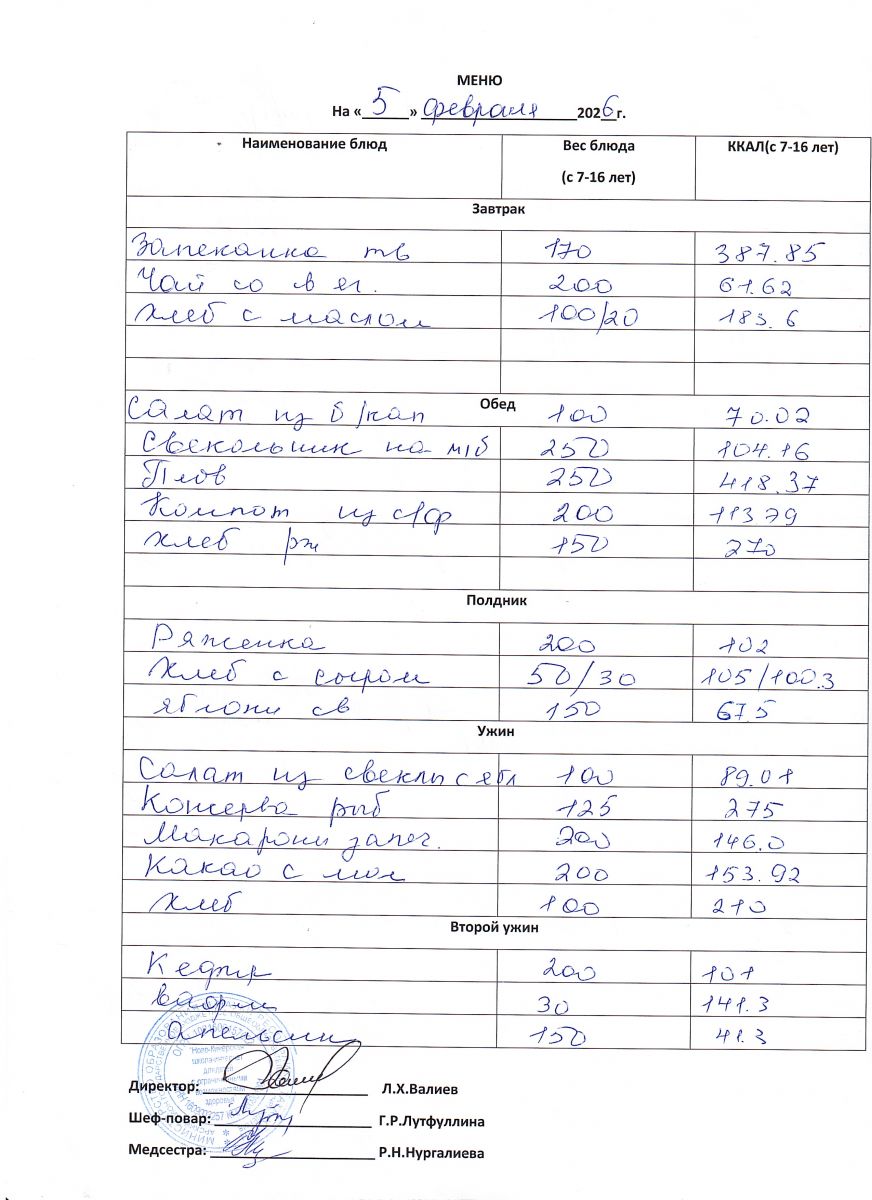 МЕНЮ
На « 5 » февраля 2026 г.
Наименование блюд Вес блюда (с 7-16 лет) ККАЛ(с 7-16 лет)
Завтрак
Запеканка тв 170 387.85
Чай со в ег. 200 61.62
Хлеб с маслом 100/20 183.6
Обед
Салат из б/кап 100 70.02
Свекольник на м/б 250 104.16
Плов 250 418.37
Компот из с/ф 200 113 79
Хлеб рж 150 270
Полдник
Ряженка 200 102
Хлеб с сыром 50/30 105/100.3
яблоки св 150 67.5
Ужин
Салат из свеклы с ябл 100 89.01
Консерва рыб 125 275
Макароны запеч. 200 146.0
Какао с мол 200 153.92
Хлеб 100 210
Второй ужин
Кефир 200 101
вафли 30 141.3
Апельсин 150 41.3
Директор: Л.Х.Валиев
Шеф-повар: Г.Р.Лутфуллина
Медсестра: Р.Н.Нургалиева